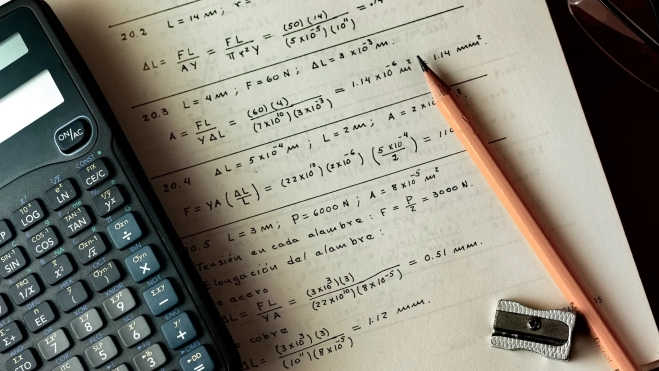 20.2 L = 14 m ; r =
ΔL = FL/AY = FL/πr²Y = (50)(14)/(5×10⁻⁵)(10¹¹) =
20.3 L = 4 m ; F = 60 N ; ΔL = 3 × 10⁻³ m.
A = FL/YΔL = (60)(4)/(7×10¹⁰)(3×10⁻³) = 1.14 × 10⁻⁶ m² 1.14 mm².
20.4 ΔL = 5 × 10⁻⁴ m ; L = 2 m ; A = 2×10
F = YA(ΔL/L) = (22×10¹⁰)(2×10⁻⁶)(5×10⁻⁴/2) = 110
0.5 L = 3 m ; P = 6000 N ; A = 8 × 10⁻⁵ m²
Tensión en cada alambre : F = P/2 = 3000 N.
Elongación del alambre :
acero
ΔL = FL/YA = (3×10³)(3)/(22×10¹⁰)(8×10⁻⁵) = 0.51 mm.
cobre
ΔL = (3×10³)(3)/(10¹¹)(8×10⁻⁵) = 1.12 mm.
ON/AC
CONST
FIX
CE/C
LN
yˣ
LOG
TAN⁻¹
TAN
÷
COS
SIN
x²
×
1/x
(
)
Σxy
EE
7
8
9
+
4
5
6
=
3
15